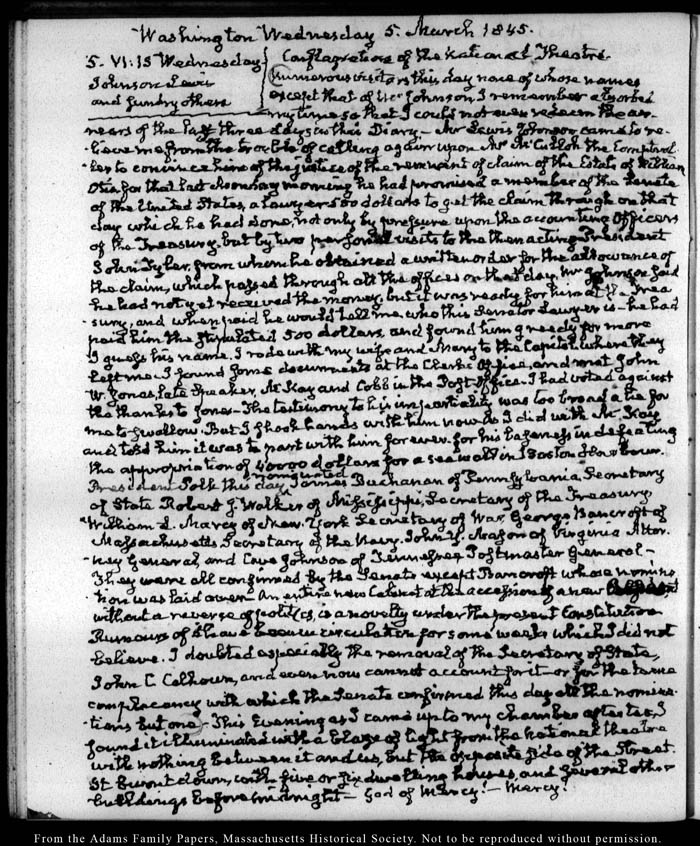 Washington Wednesday 5. March 1845.
5. VI:15 Wednesday Conflagration of the National Theatre.
Johnson Lewis Numerous visitors this day none of whose names
and sundry others except that of Mr Johnson I remember absorbed
my time so that I could not even redeem the ar-
rears of the last three days in this Diary — Mr Lewis Johnson came to re-
lieve me from the trouble of calling again upon Mr McCulloh the Comptrol-
ler to convince him of the justice of the remnant of claim of the Estate of William
Otis for that last Monday morning he had promised a member of the Senate
of the United States, a lawyer 500 dollars to get the claim through on that
day which he had done, not only by pressure upon the accounting Officers
of the Treasury, but by two personal visits to the then acting President
John Tyler, from whom he obtained a written order for the allowance of
the claim, which passed through all the offices on that day. Mr Johnson said
he had not yet received the money, but it was ready for him at the Trea
sury, and when paid he would tell me who this Senator Lawyer is — he had
paid him the stipulated 500 dollars, and found him greedy for more
I guess his name. I rode with my wife and Mary to the Capitol where they
left me. I found some documents at the Clerk's Office, and met John
W. Jones, late Speaker, McKay and Cobb in the Post-Office. I had voted against
the thanks to Jones — The testimony to his impartiality was too broad a lie for
me to swallow. But I shook hands with him now as I did with McKay
and told him it was to part with him for ever for his baseness in defeating
the appropriation of 40000 dollars for a sea wall in Boston Harbour.
President Polk this day nominated James Buchanan of Pennsylvania Secretary
of State Robert J. Walker of Mississippi, Secretary of the Treasury,
William L. Marcy of New-York Secretary of War, George Bancroft of
Massachusetts, Secretary of the Navy. John Y. Mason of Virginia Attor-
ney General, and Cave Johnson of Tennessee Postmaster General —
They were all confirmed by the Senate except Bancroft whose nomina
tion was laid over. An entire new Cabinet at the accession of a new President
without a reverse of politics, is a novelty under the present Constitution
Rumours of it have been in circulation for some weeks which I did not
believe. I doubted especially the removal of the Secretary of State,
John C Calhoun, and even now cannot account for it — or for the tame
complacency with which the Senate confirmed this day all the nomina-
tions but one — This Evening as I came up to my chamber after tea, I
found it illuminated with a blaze of light from the national theatre
with nothing between it and us, but the opposite side of the Street.
It burnt down, with five or six dwelling houses, and several other
buildings before midnight — God of Mercy! — Mercy!
From the Adams Family Papers, Massachusetts Historical Society. Not to be reproduced without permission.